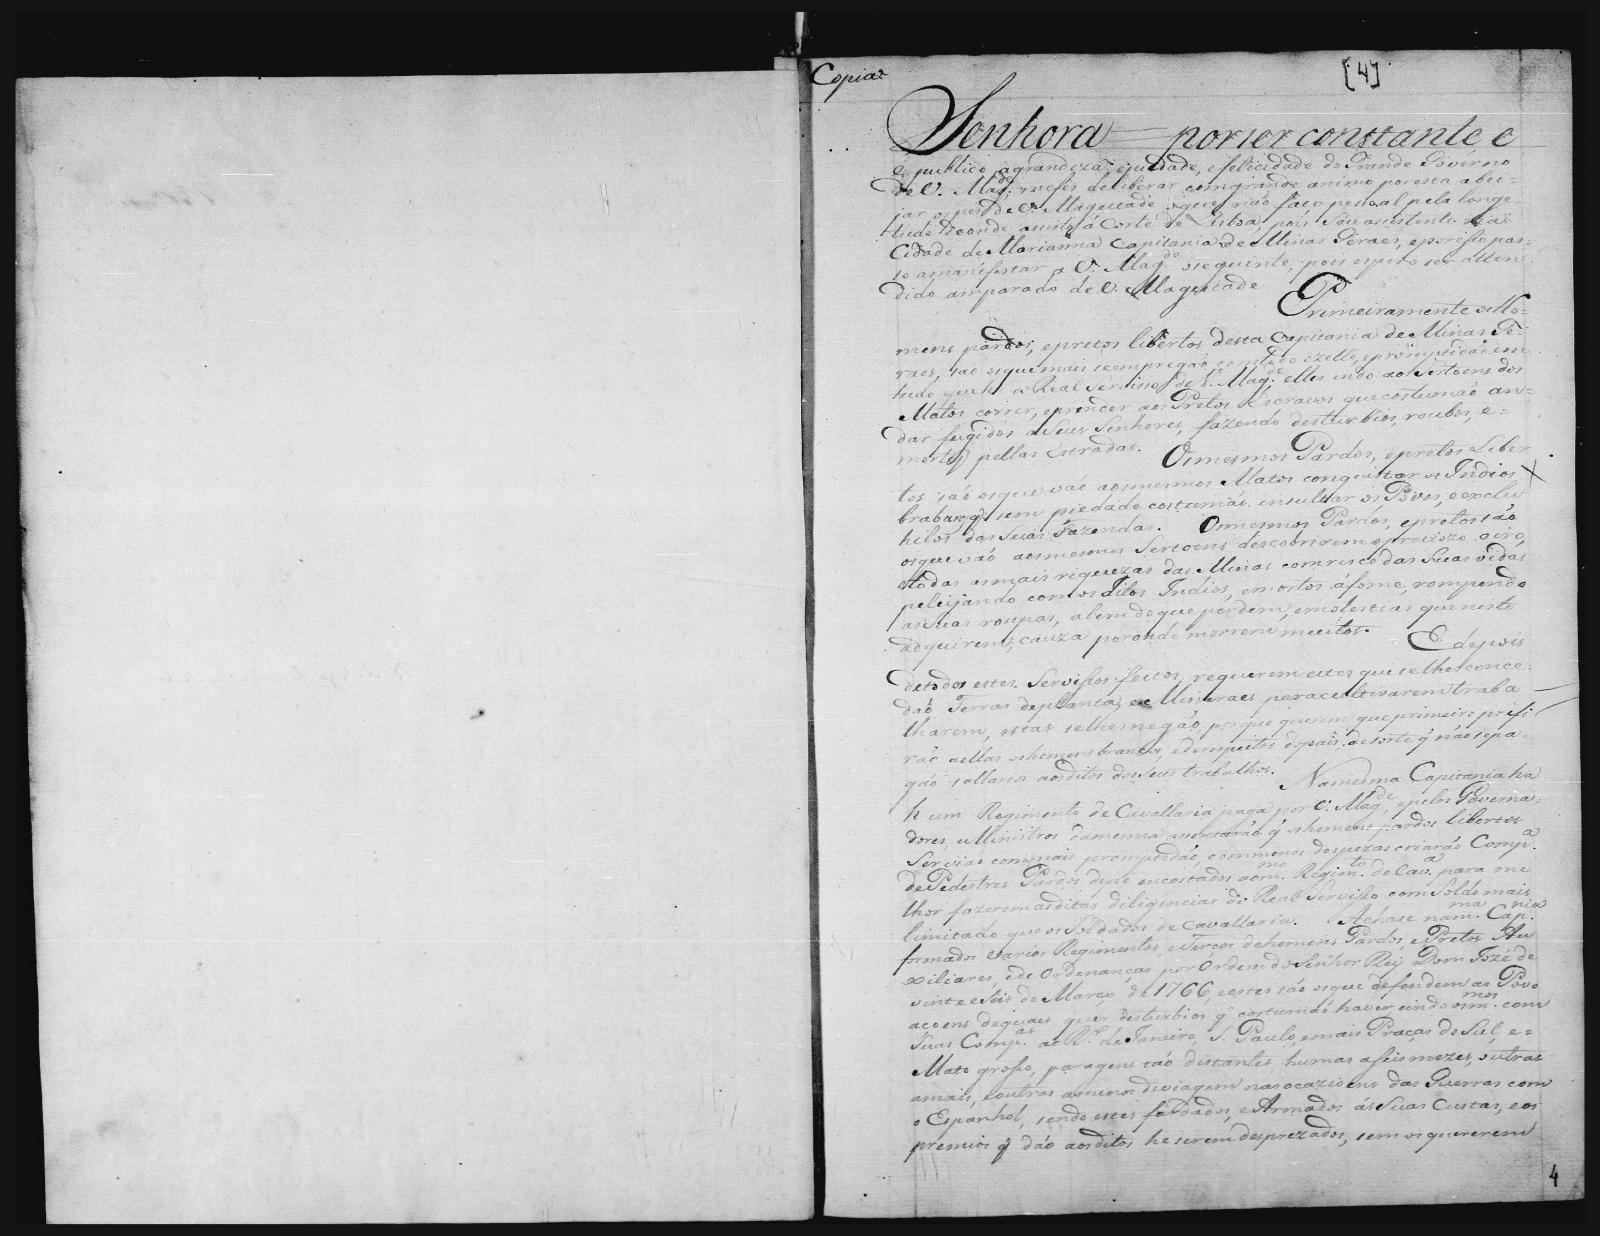 Copia
[4]
Senhora = por ser constante e
e publico a grandeza, equidade, e felicidade do Grande Governo
de V. Magde. me fis deliberar com grande animo por esta a bei=
jar os pés de V. Magestade, o que não faço pessoal pela longe
tude de onde asisto á Corte de Lisboa, pois sou asistente na
Cidade de Marianna Capitania de Minas Geraes, e por isso pas=
so a manifestar a V. Magde. o seguinte, pois espero ser atten
dido amparado de V. Magestade
Primeiramente os Ho=
mens pardos, e pretos libertos desta Capitania de Minas Ge=
raes, são os que mais se empregão com todo o zello, e promptidão em
tudo que he do Real Servisso de V. Magde. elles indo aos Sertoens dos
Matos correr, e prender aos Pretos Escravos que costumão an=
dar fugidos a Seus Senhores, fazendo desturbios, roubos, e=
mortes pellas Estradas. Os mesmos Pardos, e pretos Liber
tos são os que vão aos mesmos Matos conquistar os Indios
brabos, q. sem piedade costumão insultar os Povos, e exclu
hilos das Suas Fazendas. Os mesmos Pardos, e pretos são
os que vão aos mesmos Sertoens descobrirem o preciozo oiro,
e todas as mais riquezas das Minas com risco das Suas vidas
peleijando com os ditos Indios, e mortos á fome, rompendo
as Suas roupas, alem do que perdem, e molestias que nisto
adquirem, cauza por onde morrem muitos. E depois
de todos estes Servissos feitos, requerem estes que se lhe conce=
dão Terras de planta, e Mineraes para cultivarem traba
lharem, estas se lhes negão, porque querem que primeiro prefi
rão a ellas os homens brancos, e de respeitos do pais, de sorte q' não se pa=
gão sallarios aos ditos dos Seus trabalhos. Na mesma Capitania ha
hum Regimento de Cavallaria paga por V. Magde., e pelos Governa=
dores, e Ministros da mesma asentarão q' os homens pardos libertos
Servião com mais promptidão, com menos despezas criarão Compa.
de Pedestres Pardos de pé encostados ao mmo. Regimto. de Cava. para me
lhor fazerem as ditas diligencias do Real Servisso com Soldo mais
limitado que os Soldados de Cavallaria. Achase na mma. Capnia.
formados varios Regimentos, e Terços de homens Pardos, e Pretos Au
xiliares, e de Ordenanças por Ordem do Senhor Rey Dom Jozé de
vinte e Seis de Março de 1766, e estes são os que defendem as Povo
açoens de quaes quer desturbios q' costumão haver, e indo os mmos. com
Suas Compas. ao Ro. de Janeiro, S. Paulo, e mais Praças do Sul, e=
Mato grosso, paragens tão distantes, humas a seis mezes, outras
a mais, e outras a menos de viagem nas ocazioens das Guerras com
o Espanhol, sendo estes fardados, e Armados ás Suas Custas, e os
premios q' dão aos ditos he serem desprezados, sem os quererem
4